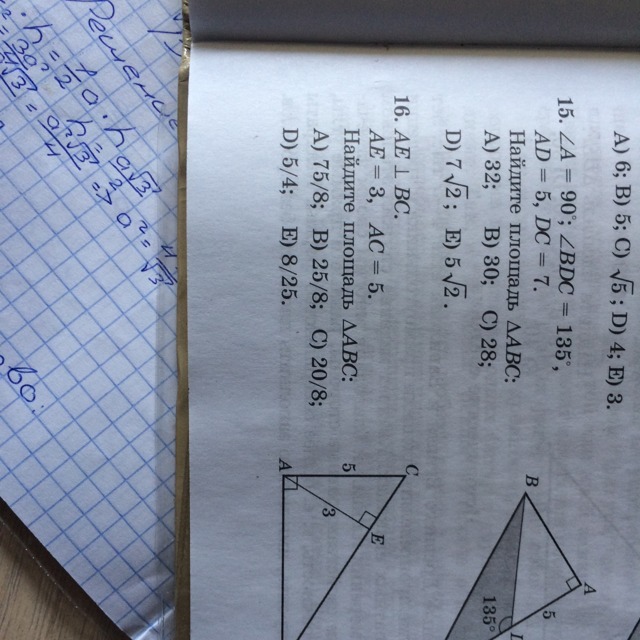 A) 6; B) 5; C) √5; D) 4; E) 3.
15. ∠A = 90°; ∠BDC = 135°,
AD = 5, DC = 7.
Найдите площадь ΔABC:
A) 32; B) 30; C) 28;
D) 7√2; E) 5√2.
16. AE ⊥ BC.
AE = 3, AC = 5.
Найдите площадь ΔABC:
A) 75/8; B) 25/8; C) 20/8;
D) 5/4; E) 8/25.
B
A
5
135°
C
5
A
3
E
Решение